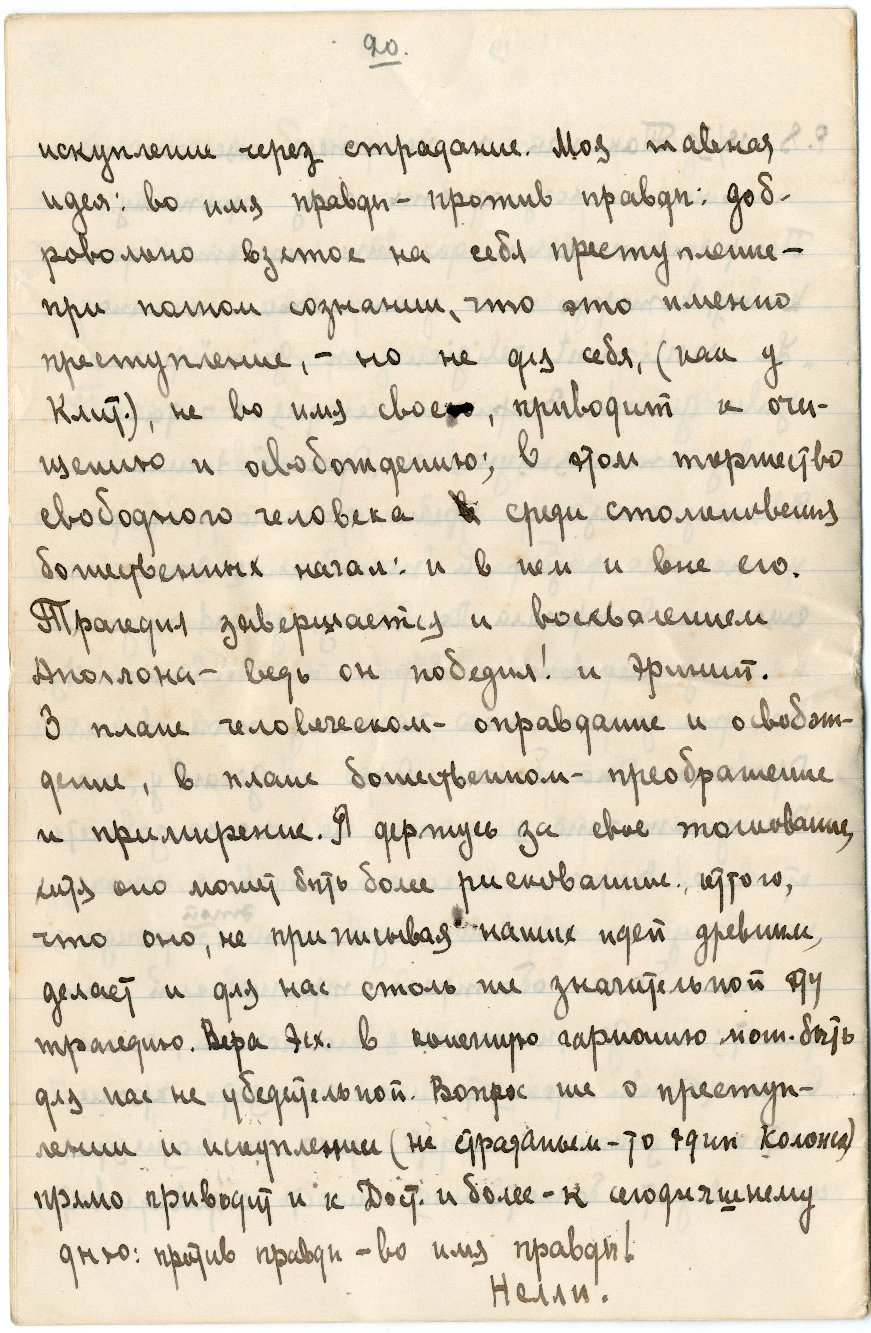 20.
искупление через страдание. Моя главная
идея: во имя правды – против правды: доб-
ровольно взятое на себя преступление –
при полном сознании, что это именно
преступление, – но не для себя, (как у
Клит.), не во имя свое, приводит к очи-
щению и освобождению; в этом торжество
свободного человека среди столкновения
божественных начал: и в нем и вне его.
Трагедия завершается и восхвалением
Аполлона – ведь он победил! и Эриний.
В плане человеческом – оправдание и освобож-
дение, в плане божественном – преображение
и примирение. Я держусь за свое толкование,
хотя оно может быть более рискованное, оттого,
что оно, не приписывая этой наших идей древним,
делает и для нас столь же значительной эту
трагедию. Вера Эсх. в конечную гармонию мож. быть
для нас не убедительной. Вопрос же о преступ-
лении и искуплении (не страданьем – то Эдип Колонск)
прямо приводит и к Дост. и более – к сегодняшнему
дню: против правды – во имя правды!
Нелли.